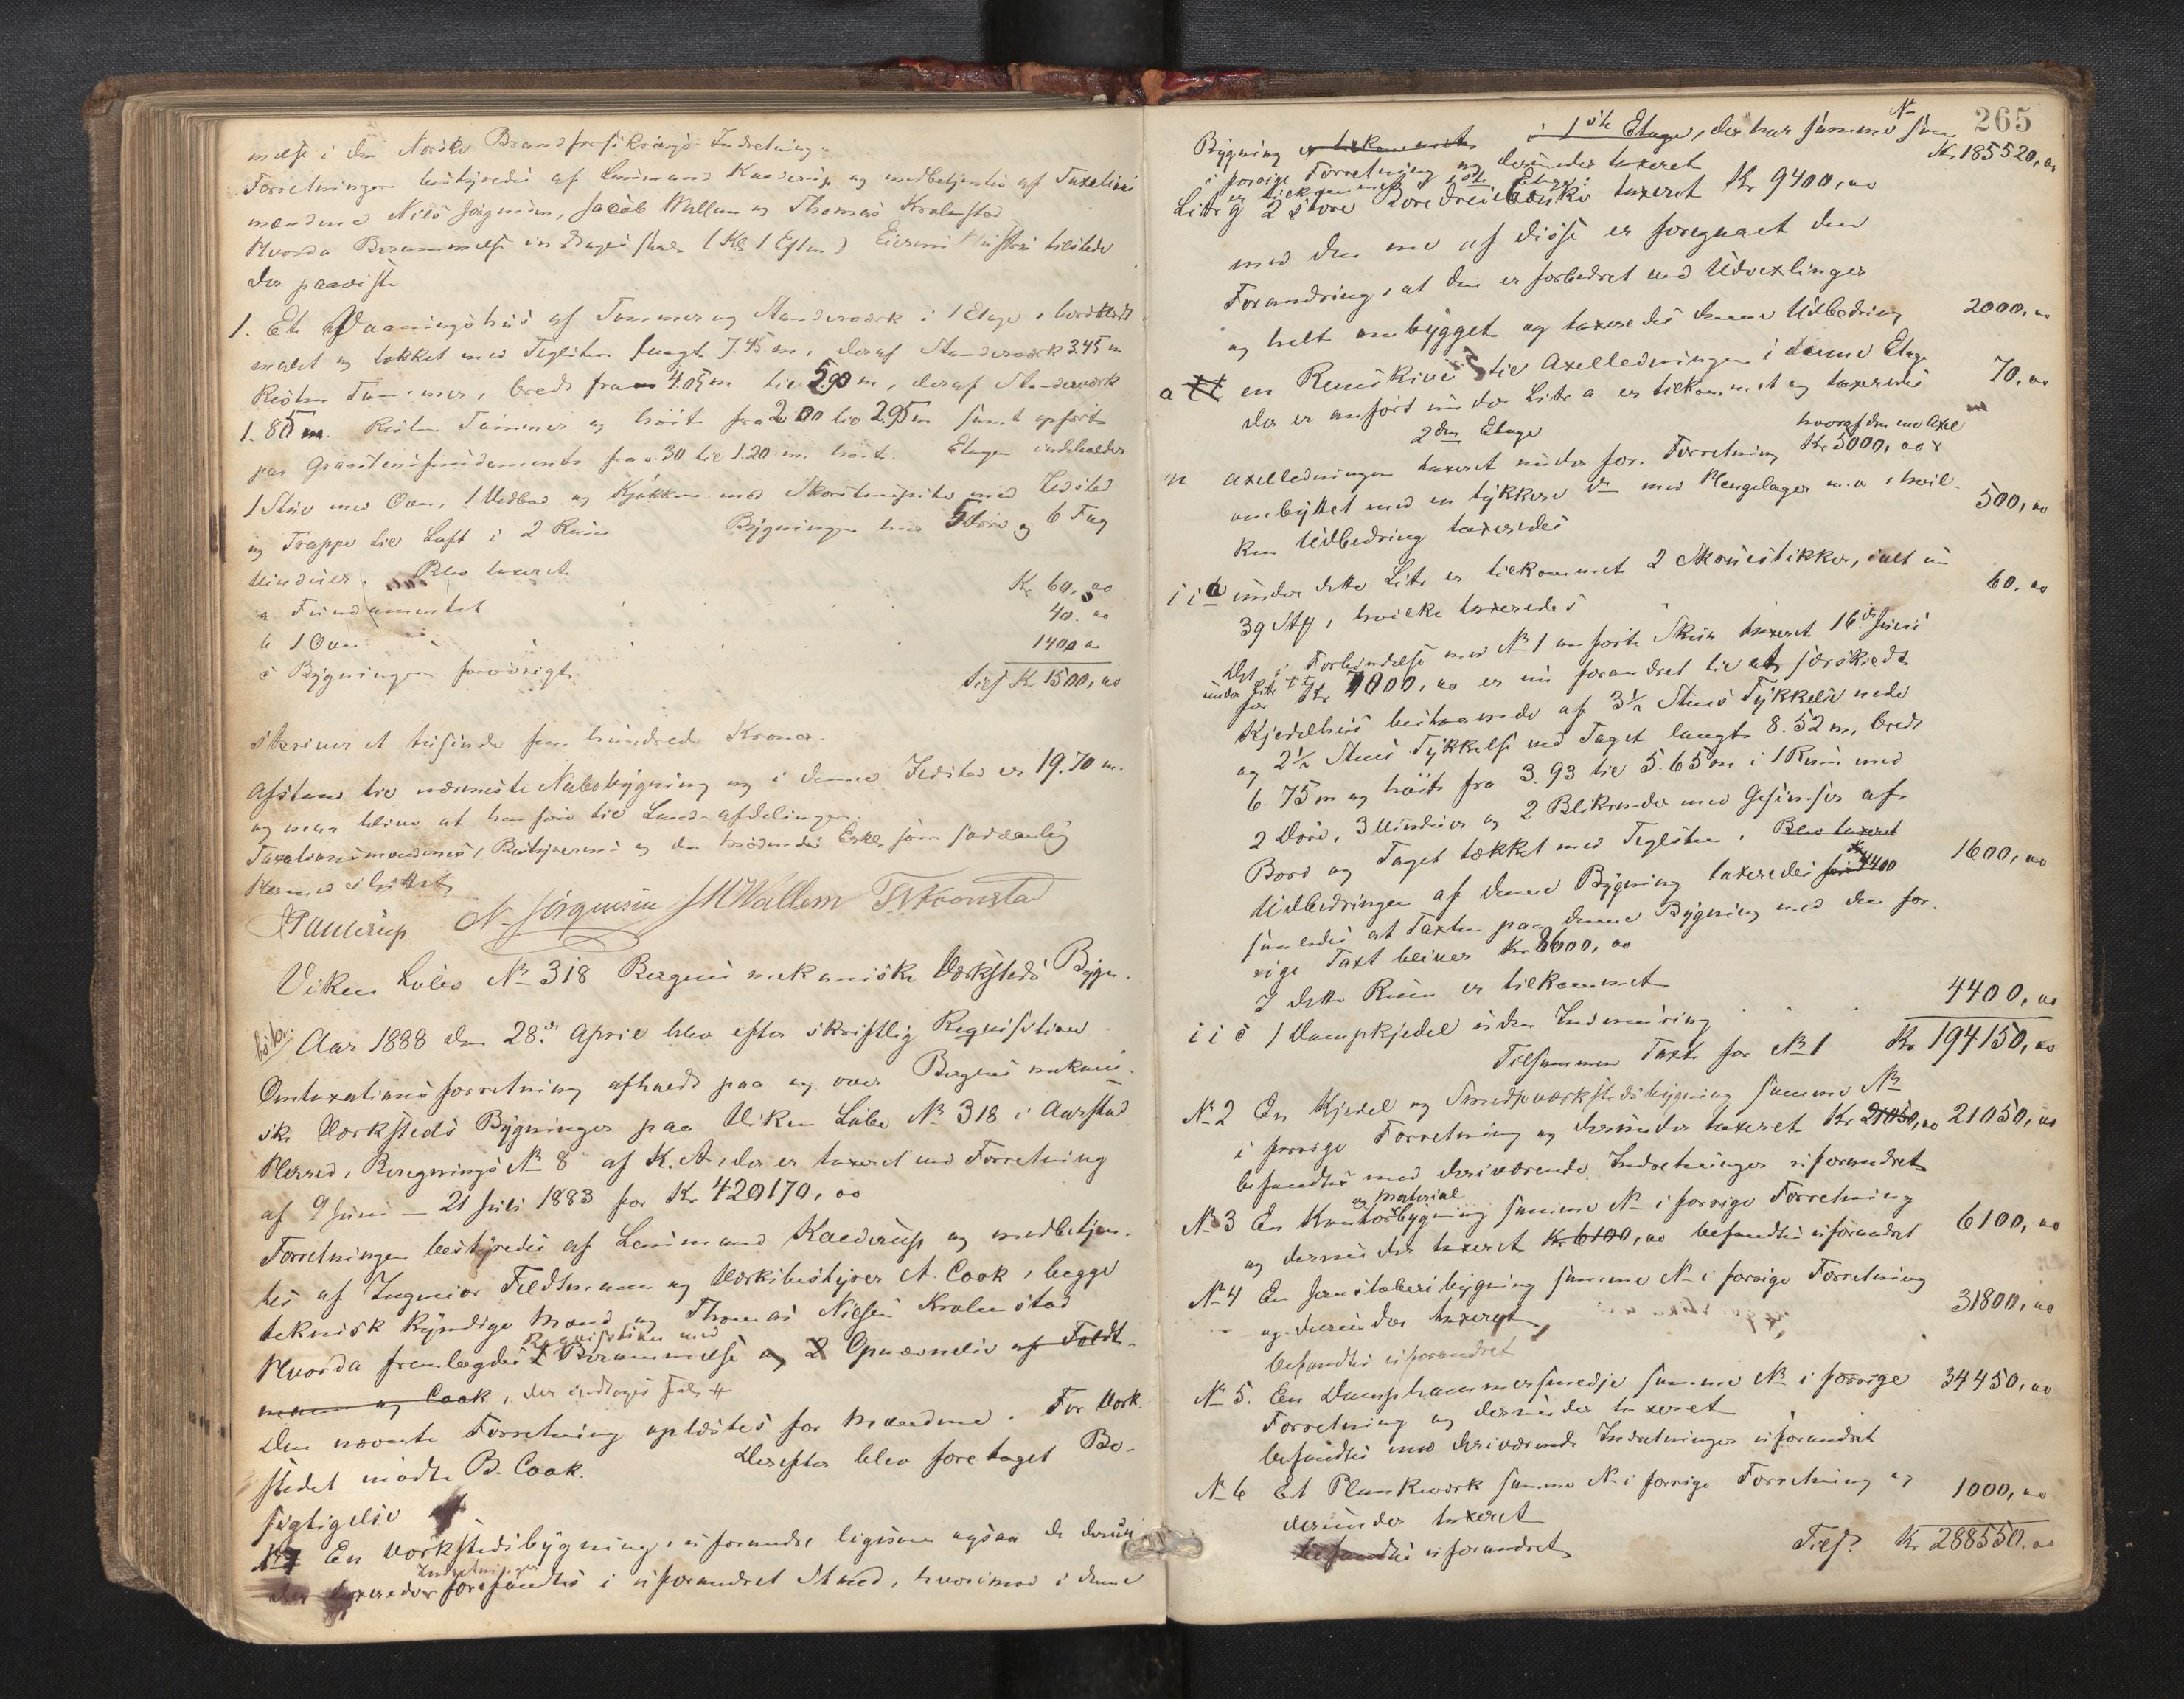 melse i den Norske Brandforsikrings-Indretning.
Forretningen bestyredes af Lensmand Kaaderup og medbetjentes af Taxations
mændene Nils Jørgensen, Jacob Wallem og Thomas Kralmstad
Hvorda Berammelse Eieren tilstede
der paaviste
1. Et Vaaningshus af Tømmer og Standerværk i 1 Etage, bordklædt
malet og tækket med Teglsten langt 7.45 m, deraf Standerværk 3.45 m
Resten Tømmer, bredt fra 4.05 m til 5.90 m, deraf Standerværk
1.85 m. Resten Tømmer og høit fra 2.00 til 2.95 m samt opført
paa Graastensfundament fra 0.30 til 1.20 m høit. Etagen indeholder
1 Stue med Ovn, 1 Vedbod og Kjøkken med Skorstenspibe med Ildsted
og Trappe til Loft i 2 Rum Bygningen har 5 Døre og 6 Fag
Vinduer. Blev taxeret
a Fundamentet Kr 60,00
b 1 Ovn 40.00
c Bygningen forøvrigt 1400 00
Tils Kr 1500,00
skriver et tusinde fem hundrede Kroner.
Afstand til nærmeste Nabobygning og i denne Ildsted er 19.70 m.
og man bliver at henføre til Lands-afdelingen.
Taxationsmændenes, Bestyrerens og den mødendes Erkl. som sædvanlig
Hermed sluttet
Kaaderup N. Jørgensen J W Wallem T N Kronstad
Viken Løbe No 318 Bergens mekaniske Værksteds Bygn.
Aar 1888 den 28de April blev efter skriftlig Requisition
Omtaxationsforretning afholdt paa og over Bergens mekani-
ske Værksteds Bygninger paa Viken Løbe No 318 i Aarstad
Herred, Beregnings No 8 af K. A., der er taxeret ved Forretning
af 9 Juni – 21 Juli 1883 for Kr 420170,00
Forretningen bestyredes af Lensmand Kaaderup og medbetjen-
tes af Ingeniør Feldtmann og Værksbestyrer A. Cook, begge
teknisk kyndige Mænd og Thomas Nielsen Kralmstad
Requisition med
Hvorda fremlagdes Berammelse og 2 Opnævnelse af Feldt-
mann og Cook, der indtages
Den nævnte Forretning oplæstes for Mændene. For Værk-
stedet mødte B. Cook. Derefter blev foretaget Be-
sigtigelse
No 1 En Værkstedsbygning, uforandret ligesom ogsaa de derun-
Indretninger
der taxerede forefandtes i uforandret Stand, hvorimod i denne
265
Bygning er tilkommet i 1ste Etage, der har samme No som
i forrige Forretning og derunder taxeret Kr 185520,00
er tilkommet 1ste Etage:
Litr g 2 store Boredreiebænke taxeret Kr 9400,00
med den ene af disse er foregaaet den
Forandring, at den er forbedret med Udvexlinger
og helt ombygget og taxeredes denne Udbedring 2000,00
a en Remskive til Axelledningen i denne Etage
der er anført under Litr a er tilkommet og taxeredes 70,00
2den Etage hvoraf den ene Axel
n Axelledningen taxeret under for. Forretning Kr 5000,00 er
ombyttet med en tykkere do med Hængelager m.v., hvil-
ken Udbedring taxeredes 500,00
i i b under dette Litr er tilkommet 2 Skruestikker, ialt nu
39 Stk, hvilke taxeredes 60.00
Det i Forbindelse med No 1 anførte Skur taxeret 16de Juni
under Litr tt
for Kr 7000,00 er nu forandret til et særskilt
Kjedelhus bestaaende af 3½ Stens Tykkelse nede
og 2½ Stens Tykkelse ved Taget langt 8.52 m, bredt
6.75 m og høit fra 3.93 til 5.65 m i 1 Rum med
2 Døre, 3 Vinduer og 2 Blikrender med Gesimser af
Bord og Taget tækket med Teglsten. Blev taxeret
Udbedringen af denne Bygning taxeredes 1600,00
saaledes at Taxten paa denne Bygning med den for-
rige Taxt bliver Kr 8600,00
I dette Rum er tilkommet
i i c 1 Dampkjedel uden Indmuring 4400,00
Tilsammen Taxt for No 1 Kr 194150,00
No 2 En Kjedel og Smedjeværkstedsbygning samme No
i forrige Forretning og derunder taxeret Kr 21050,00 21050,00
befandtes med deriværende Indretninger uforandret
og Material
No 3 En Kontorbygning samme No i forrige Forretning
og derunder taxeret Kr 6100,00 befandtes uforandret 6100,00
No 4 En Jernstøberibygning samme No i forrige Forretning
og derunder taxeret 31800,00
befandtes uforandret
No 5. En Damphammersmedje samme No i forrige 34450,00
Forretning og derunder taxeret
befandtes med deriværende Indretninger uforandret
No 6 Et Plankeværk samme No i forrige Forretning og 1000,00
derunder taxeret
befandtes uforandret Tils. Kr 288550,00